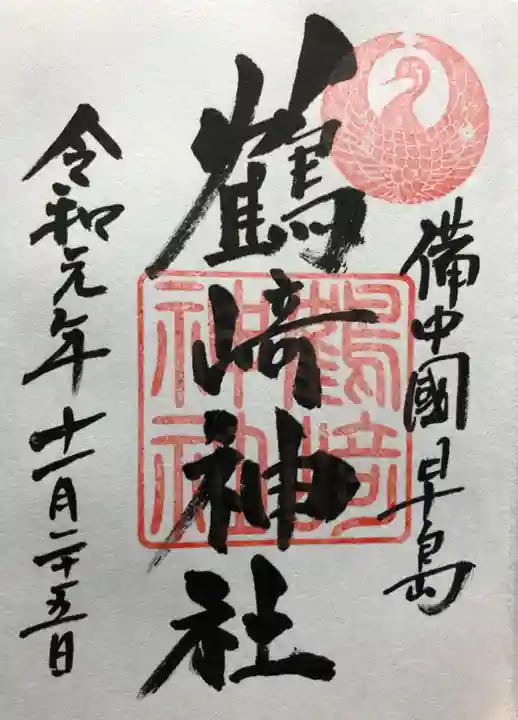 備中國早島
鶴崎神社
鶴崎
神社
令和元年十一月二十五日